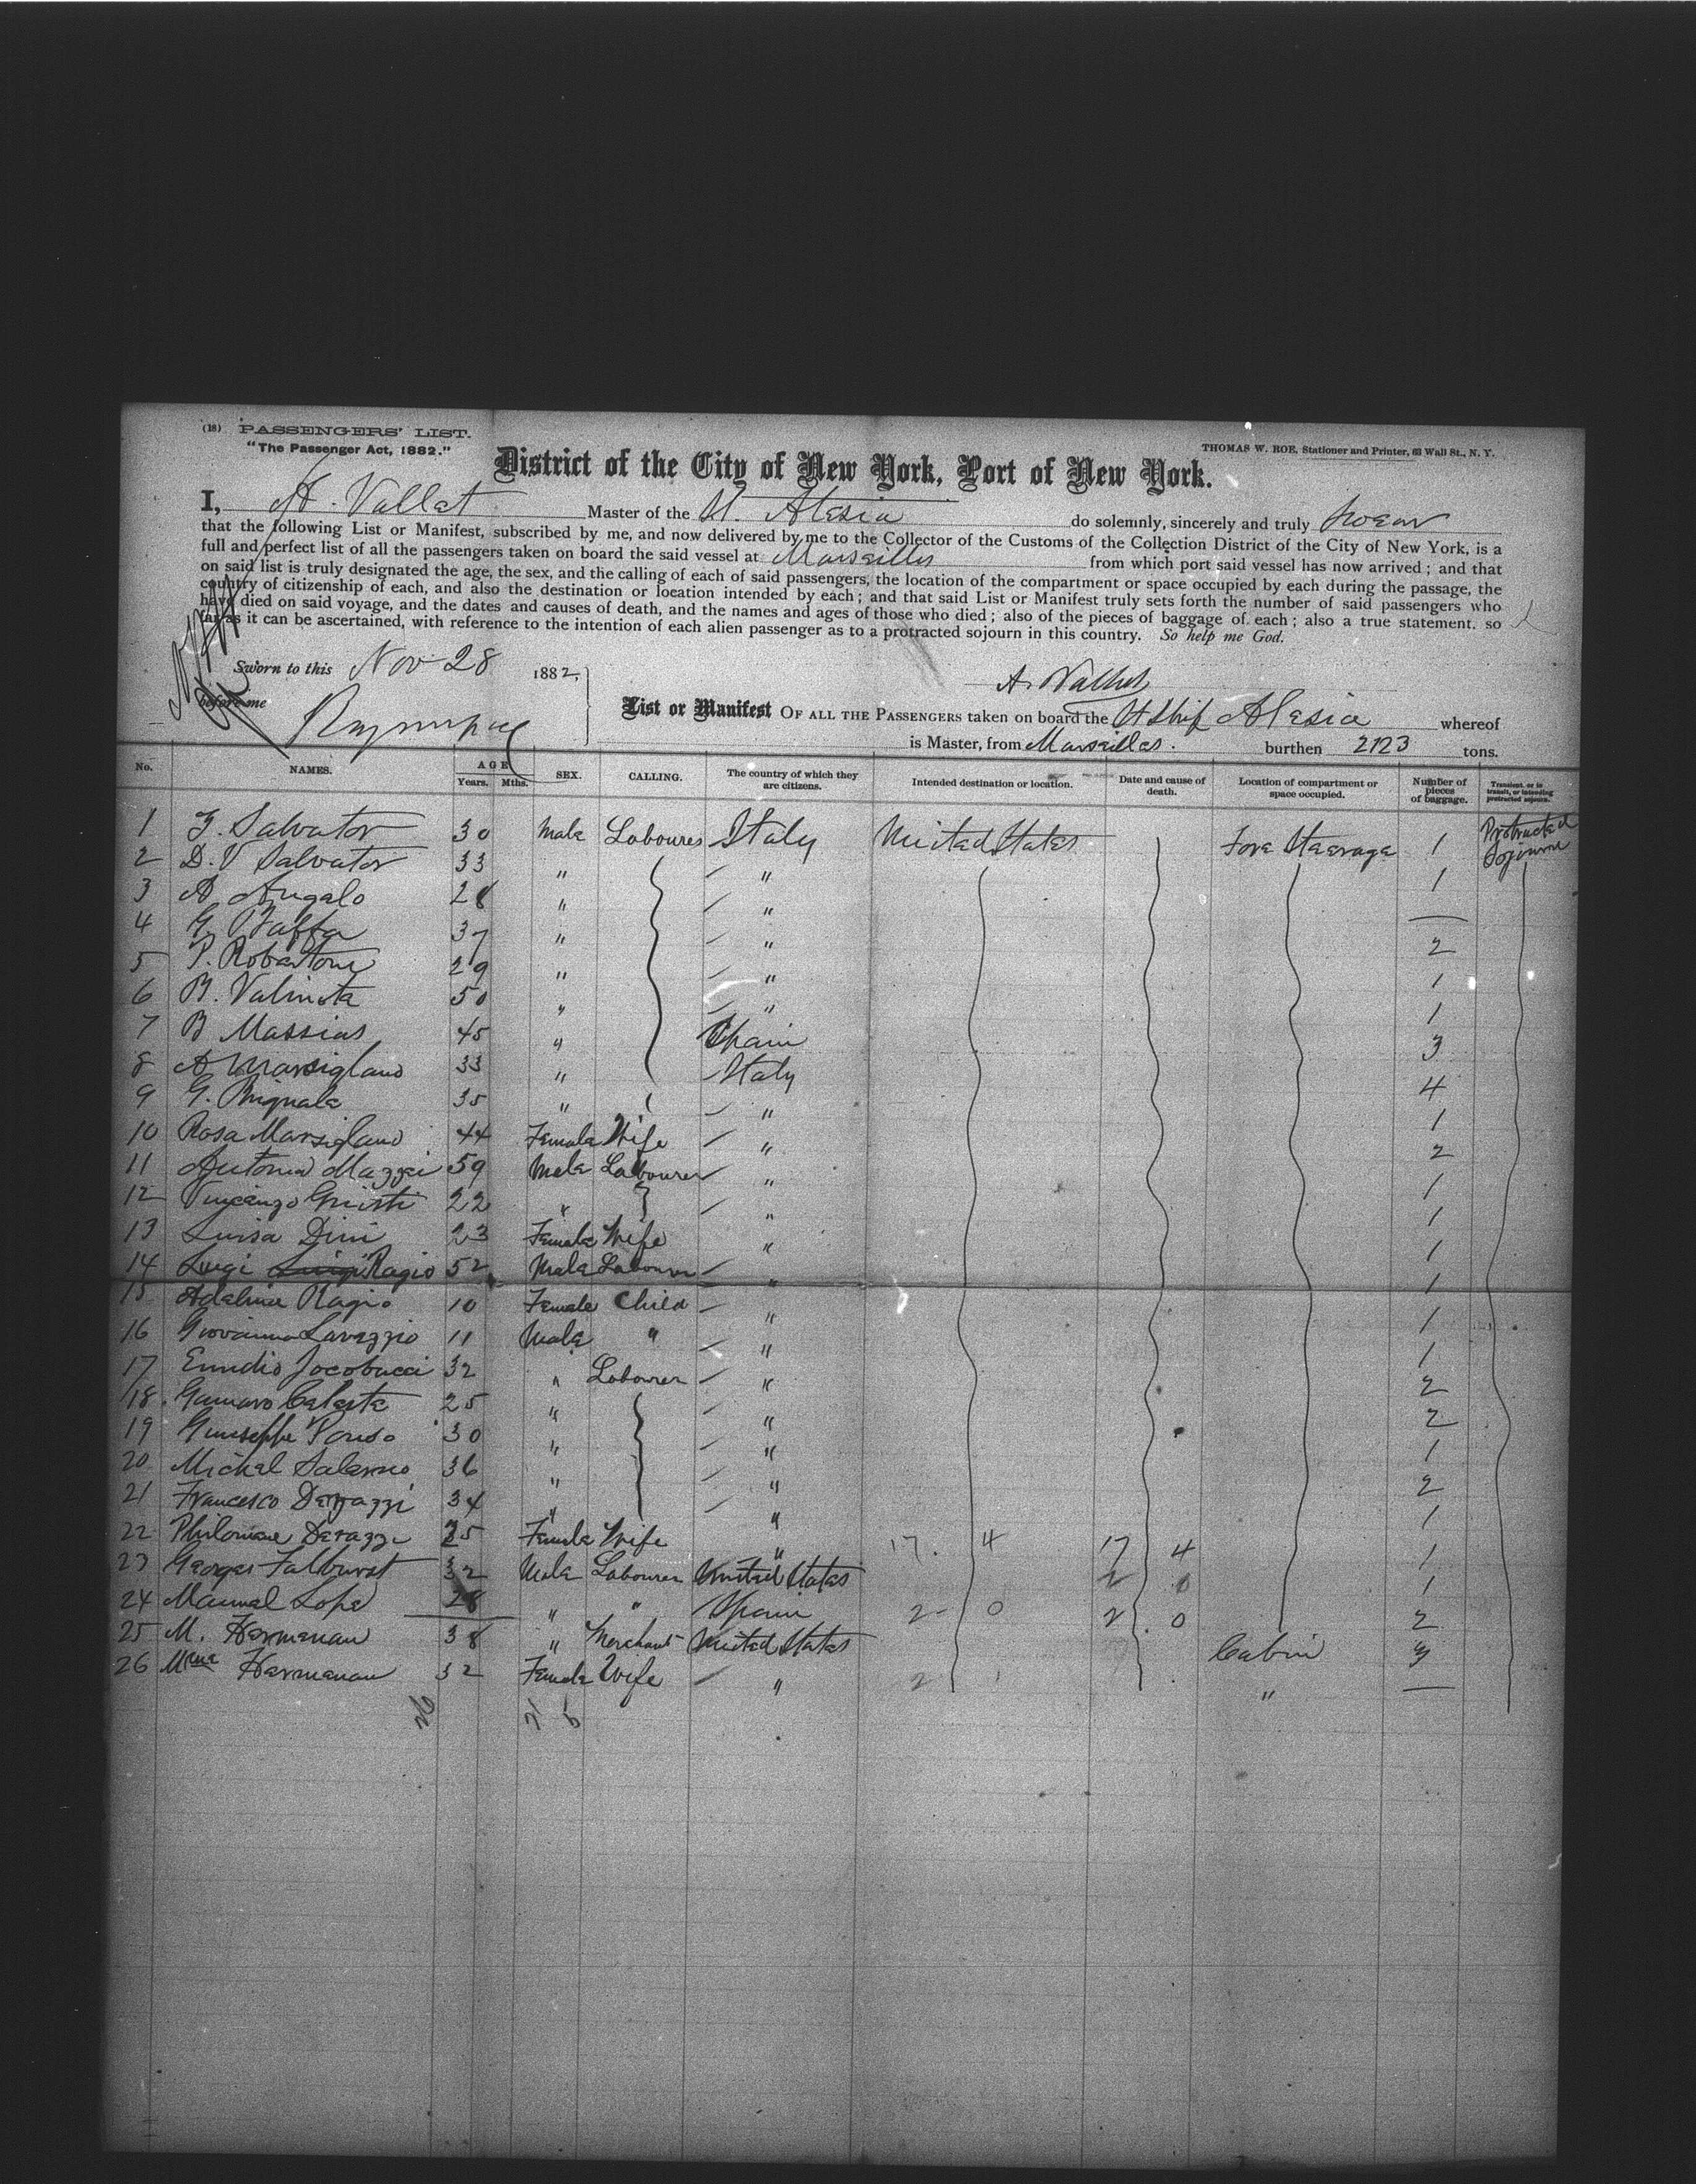 (18) PASSENGERS' LIST.
"The Passenger Act, 1882."
THOMAS W. ROE, Stationer and Printer, 63 Wall St., N. Y.
District of the City of New York, Port of New York.
I, A. Vallat Master of the St. Alesia do solemnly, sincerely and truly swear
that the following List or Manifest, subscribed by me, and now delivered by me to the Collector of the Customs of the Collection District of the City of New York, is a
full and perfect list of all the passengers taken on board the said vessel at Marseilles from which port said vessel has now arrived; and that
on said list is truly designated the age, the sex, and the calling of each of said passengers, the location of the compartment or space occupied by each during the passage, the
country of citizenship of each, and also the destination or location intended by each; and that said List or Manifest truly sets forth the number of said passengers who
have died on said voyage, and the dates and causes of death, and the names and ages of those who died; also of the pieces of baggage of each; also a true statement, so
far as it can be ascertained, with reference to the intention of each alien passenger as to a protracted sojourn in this country. So help me God.
Sworn to this Nov 28 1882,
before me
A. Vallat
List or Manifest OF ALL THE PASSENGERS taken on board the St Ship Alesia whereof
is Master, from Marseilles. burthen 2123 tons.
No. NAMES. AGE Years. Mths. SEX. CALLING. The country of which they are citizens. Intended destination or location. Date and cause of death. Location of compartment or space occupied. Number of pieces of baggage. Transient, or in transit, or intending protracted sojourn.
1 G. Salvator 30 Male Labourer Italy United States Fore Steerage 1 Protracted Sojourn
2 D. V Salvator 33 " " 1
3 A Angalo 28 " " —
4 G. Raffa 37 " " 2
5 P. Robertone 29 " " 1
6 B. Valinota 50 " " 1
7 B Massias 45 " Spain 3
8 A Marsigliano 33 " Italy 4
9 G. Brignale 35 " " 1
10 Rosa Marsigliano 44 Female Wife " 2
11 Antonio Mazzei 59 Male Labourer " 1
12 Vincenzo Giusti 22 " " 1
13 Luisa Dini 23 Female Wife " 1
14 Luigi Ragio 52 Male Labourer " 1
15 Adelina Ragio 10 Female Child " 1
16 Giovanna Lavezzio 11 Male " " 1
17 Emidio Jocobucci 32 " Labourer " 2
18 Gennaro Celeste 25 " " 2
19 Giuseppe Paruso 30 " " 1
20 Michel Salerno 36 " " 2
21 Francesco Derazzi 34 " " 1
22 Philomene Derazzi 25 Female Wife " 17. 4 17 4 1
23 Georges Falburst 32 Male Labourer United States 2 0 1
24 Manuel Lope 28 " " Spain 2 0 2 0 2
25 M. Hermenau 38 " Merchant United States Cabin 3
26 Mme Hermenau 32 Female Wife " 2 " —
26 21 5